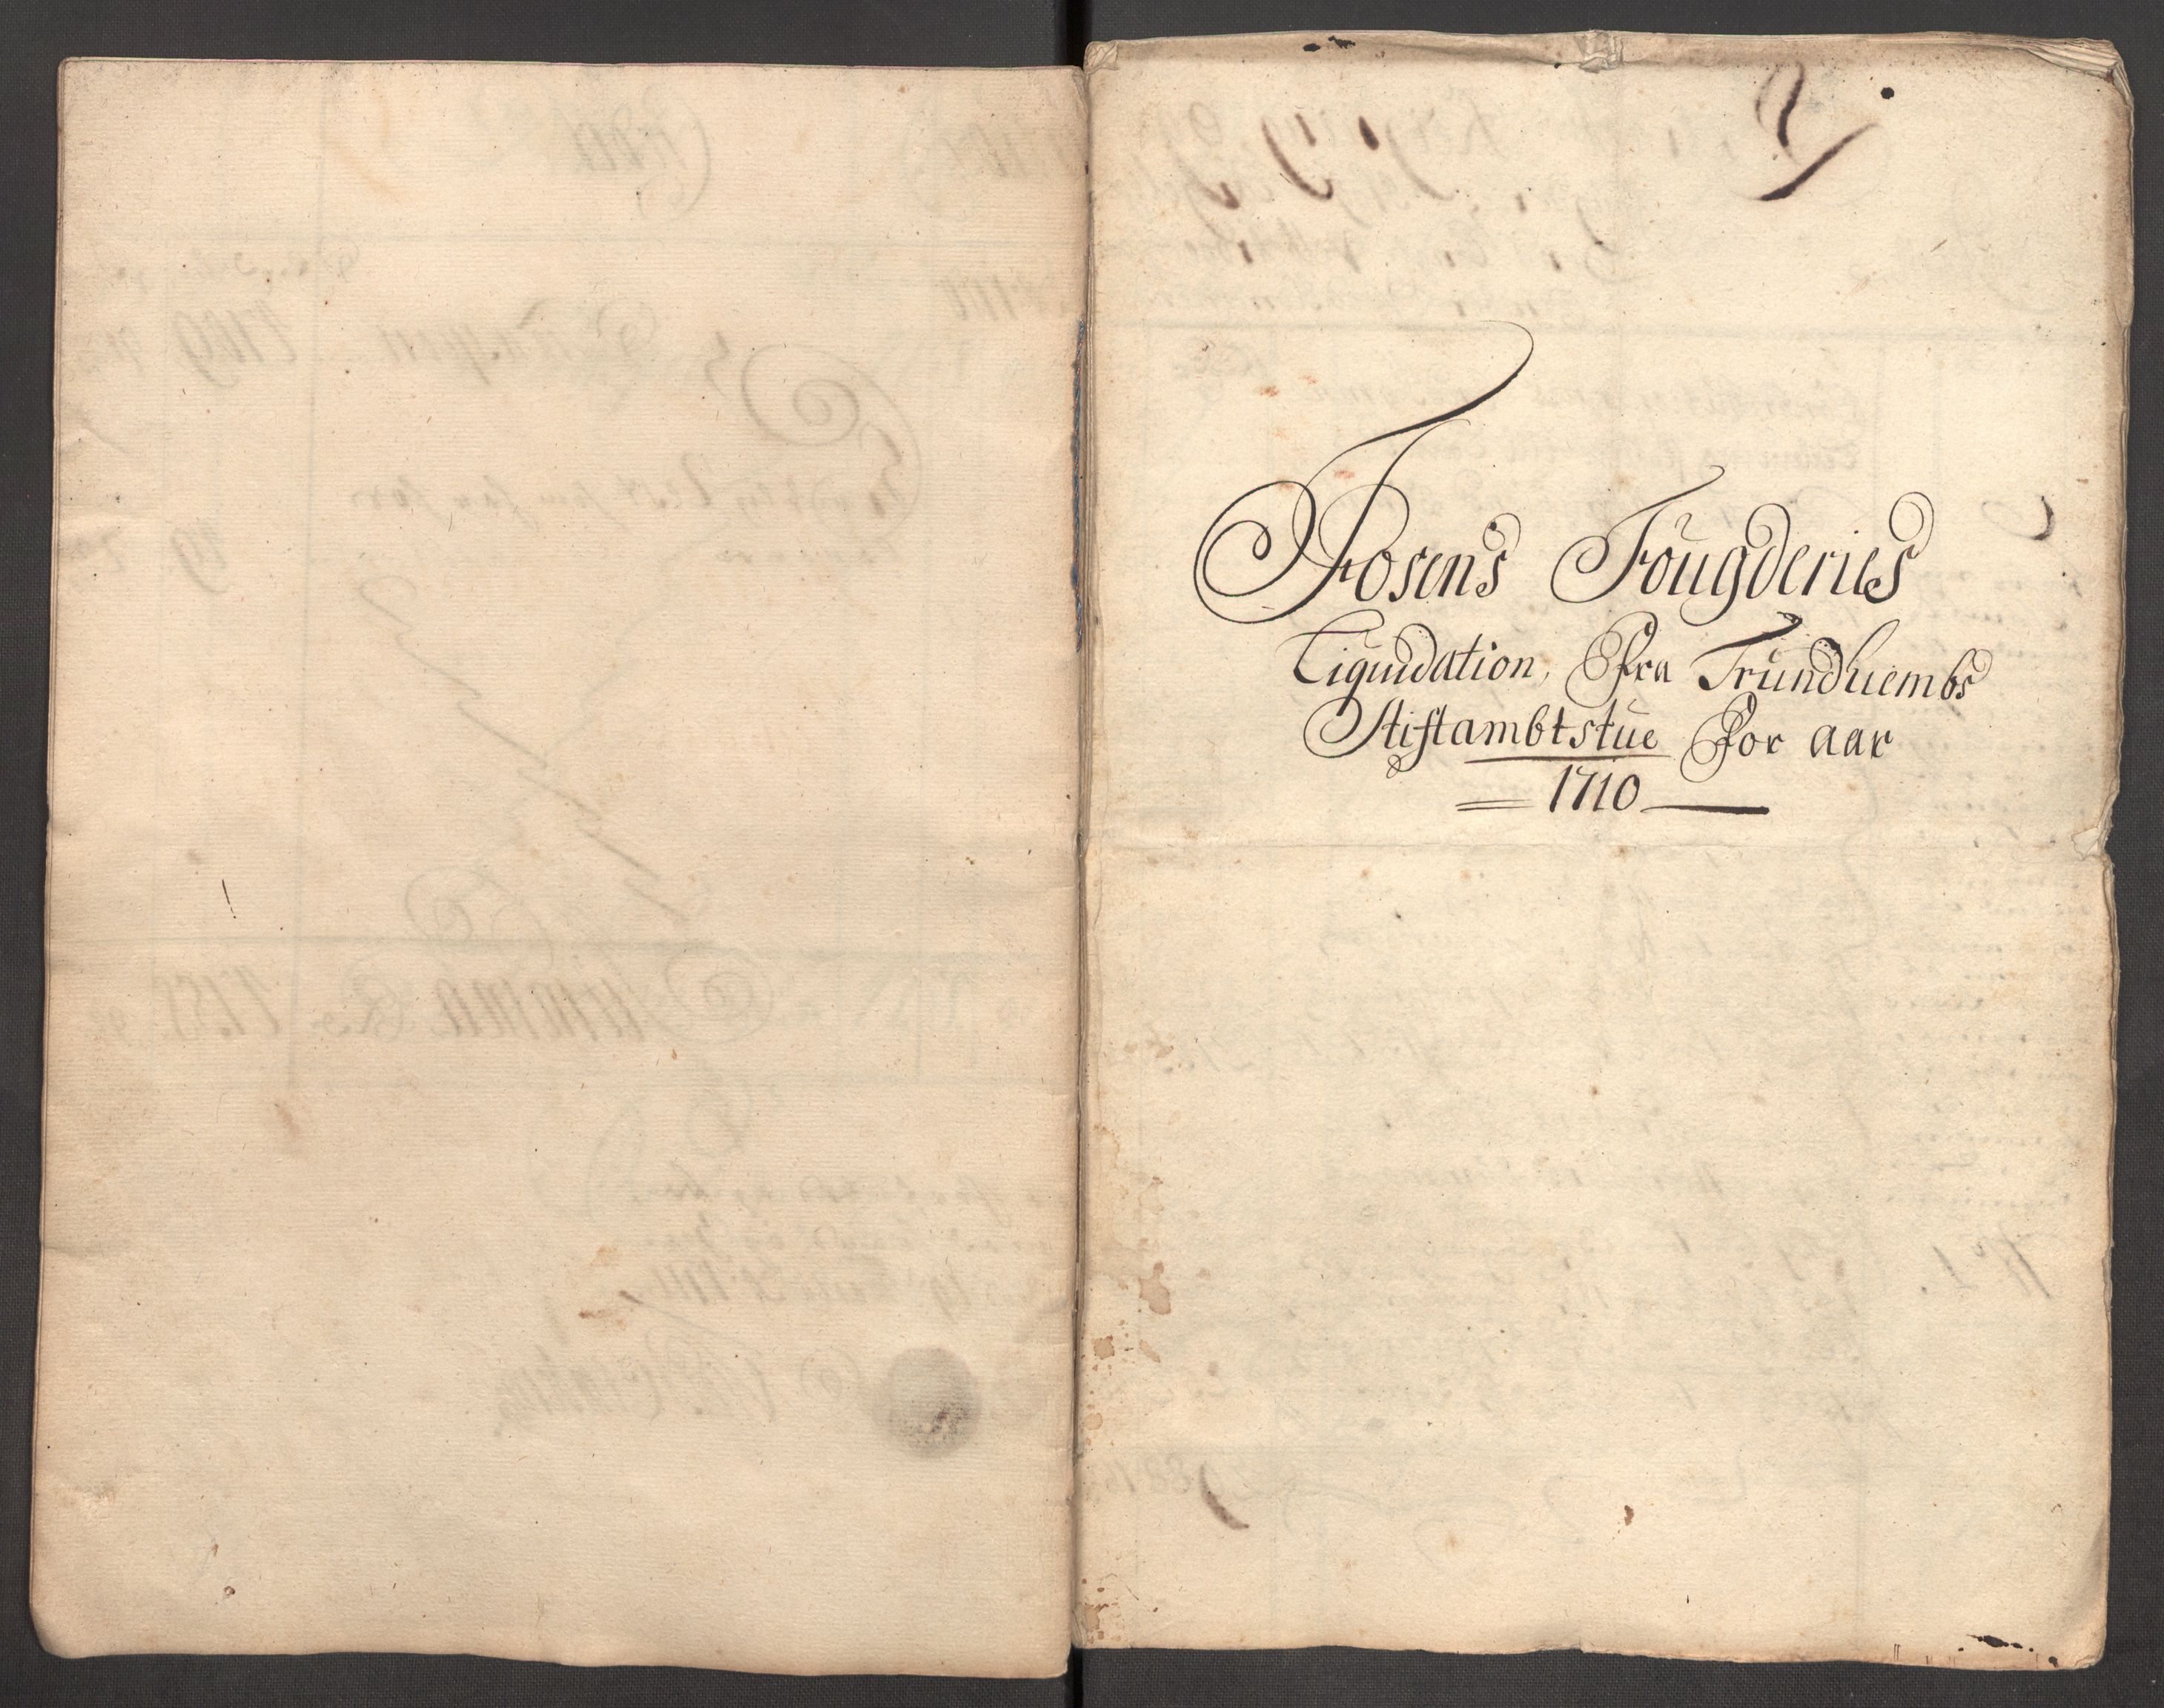 Fosens Fougderies
Liquidation, Fra Trundhiembs
Stiftambtstue For aar
1710